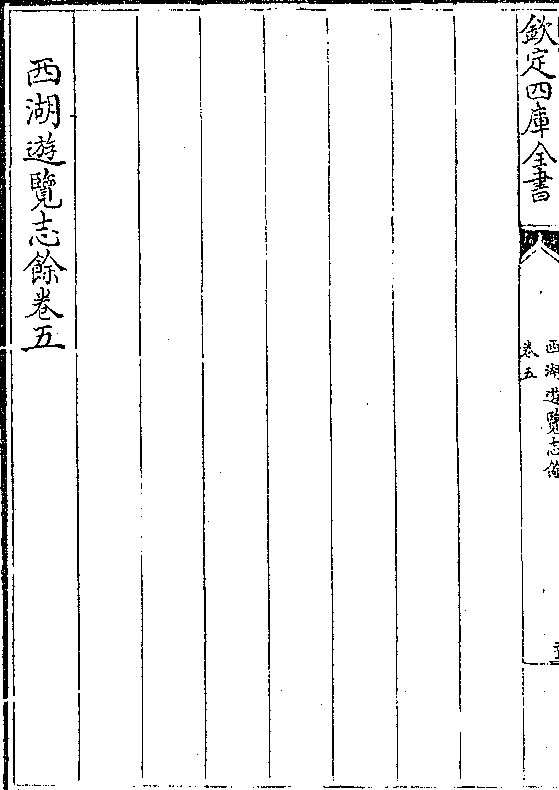 欽定四庫全書
西湖遊覽志餘
卷五
西湖遊覽志餘卷五